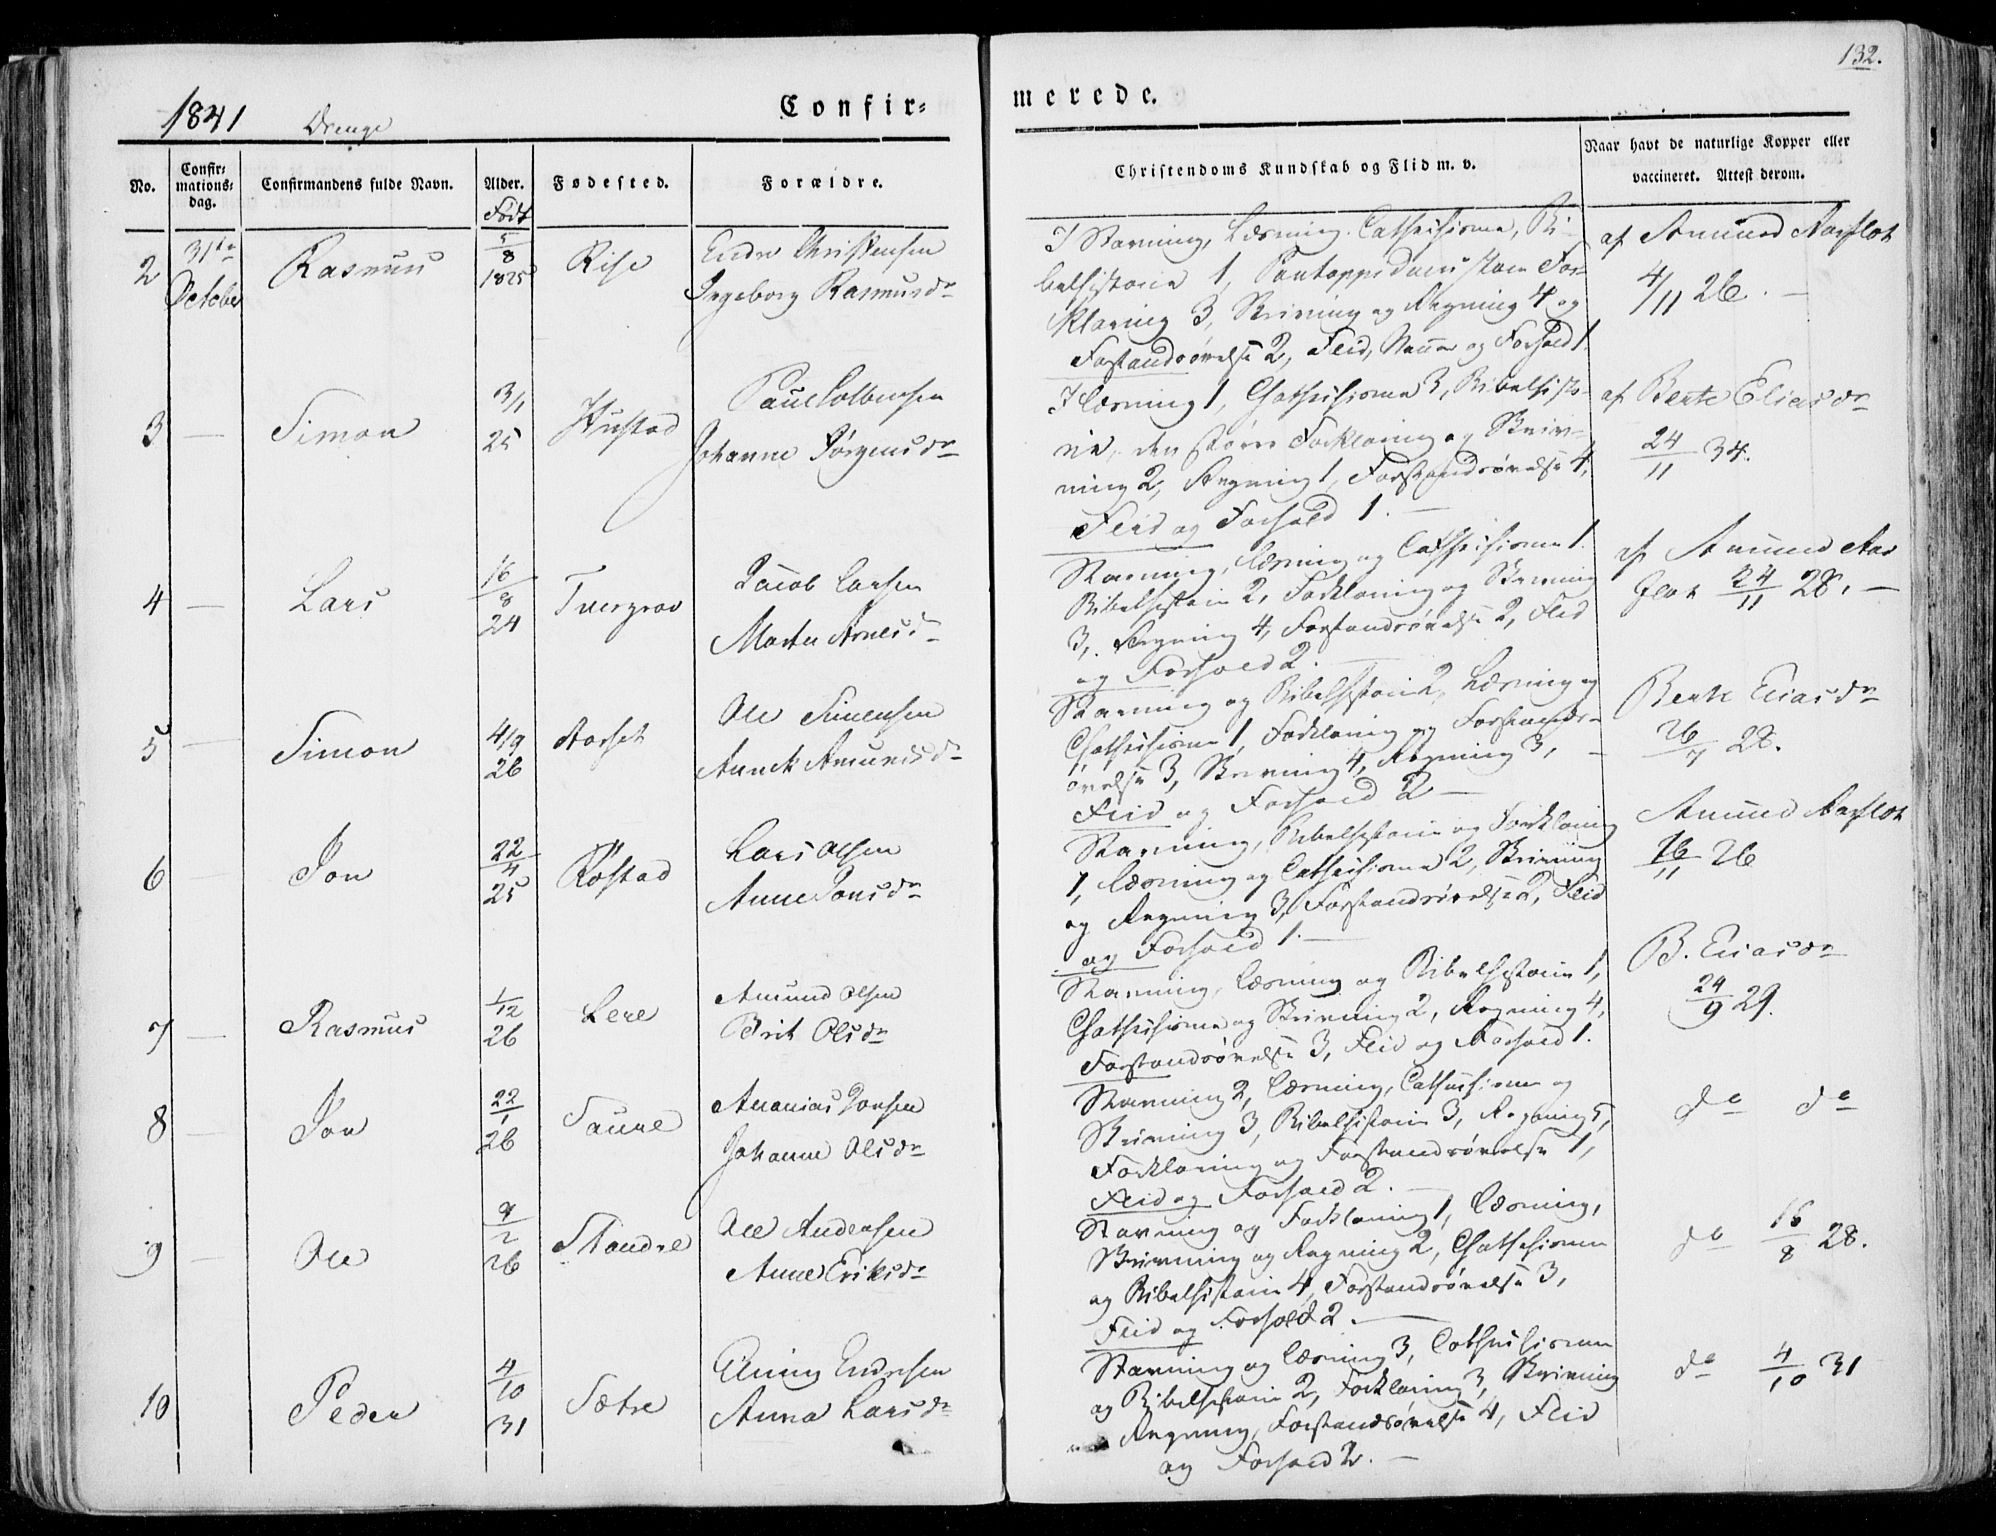 132.
1841 Drenge
Confir=
merede.
No.
Confir=
mations=
dag.
Confirmandens fulde Navn.
Alder.
Født
Fødested.
Forældre.
Christendoms Kundskab og Flid m. v.
Naar havt de naturlige Kopper eller
vaccineret. Attest derom.
2 31te October Rasmus 5/8 1825 Rise
Endre Christensen
Ingeborg Rasmusdr
I Stavning, Læsning, Cathechisme, Bi-
belhistorie 1, Pontoppidans store For-
klaring 3, Skrivning og Regning 4 og
Forstandsøvelse 2, Flid, Nemme og Forhold 1.
af Amund Aarflot
4/11 26. —
3 — Simon 3/1 25 Hustad
Paul Colbensen
Johanne Jørgensdr
I Læsning 1, Cathechisme 3, Bibelhisto-
rie, den større Forklaring og Skriv-
ning 2, Regning 1, Forstandsøvelse 4,
Flid og Forhold 1. —
af Berte Eliasdr
24/11 34.
4 — Lars 16/8 24 Tuergrov
Jacob Larsen
Marte Arnesdr
Stavning, Læsning og Cathechisme 1.
Bibelhistorie 2, Forklaring og Skrivning
3, Regning 4, Forstandsøvelse 2, Flid
og Forhold 2. —
af Amund Aar
flot 24/11 28. —
5 — Simon 4/9 26 Aarset
Ole Simensen
Annek Amundsdr
Stavning og Bibelhistorie 2, Læsning og
Cathechisme 1, Forklaring og Forstands-
øvelse 3, Skrivning 4, Regning 3, —
Flid og Forhold 2 —
Berte Eliasdr
26/7 28.
6 — Jon 22/4 25 Røstad
Lars Olsen
Anne Jonsdr
Stavning, Bibelhistorie og Forklaring
1, Læsning og Cathechisme 2, Skrivning
og Regning 3, Forstandsøvelse 2, Flid
og Forhold 1. —
Amund Aarflot
16/11 26
7 — Rasmus 1/12 26 Lere
Amund Olsen
Brit Olsdr
Stavning, Læsning og Bibelhistorie 1,
Cathechisme og Skrivning 2, Regning 4,
Forstandsøvelse 3, Flid og Forhold 1.
B. Eliasdr
24/9 29.
8 — Jon 22/1 26 Saure
Ananias Jonsen
Johanne Olsdr
Stavning 2, Læsning, Cathechisme og
Skrivning 3, Bibelhistorie 3, Regning 5,
Forklaring og Forstandsøvelse 1,
Flid og Forhold 2. —
do do
9 — Ole 9/2 26 Standre
Ole Andersen
Anne Eriksdr
Stavning og Forklaring 1, Læsning,
Skrivning og Regning 2, Cathechisme
og Bibelhistorie 4, Forstandsøvelse 3,
Flid og Forhold 2. —
do 16/8 28.
10 Peder 4/10 31 Sætre
Elling Endresen
Anna Larsdr
Stavning og Læsning 3, Cathechisme
og Bibelhistorie 2, Forklaring 3, Skrivning
Regning, Forstandsøvelse 4, Flid
og Forhold 2. —
do 4/10 31